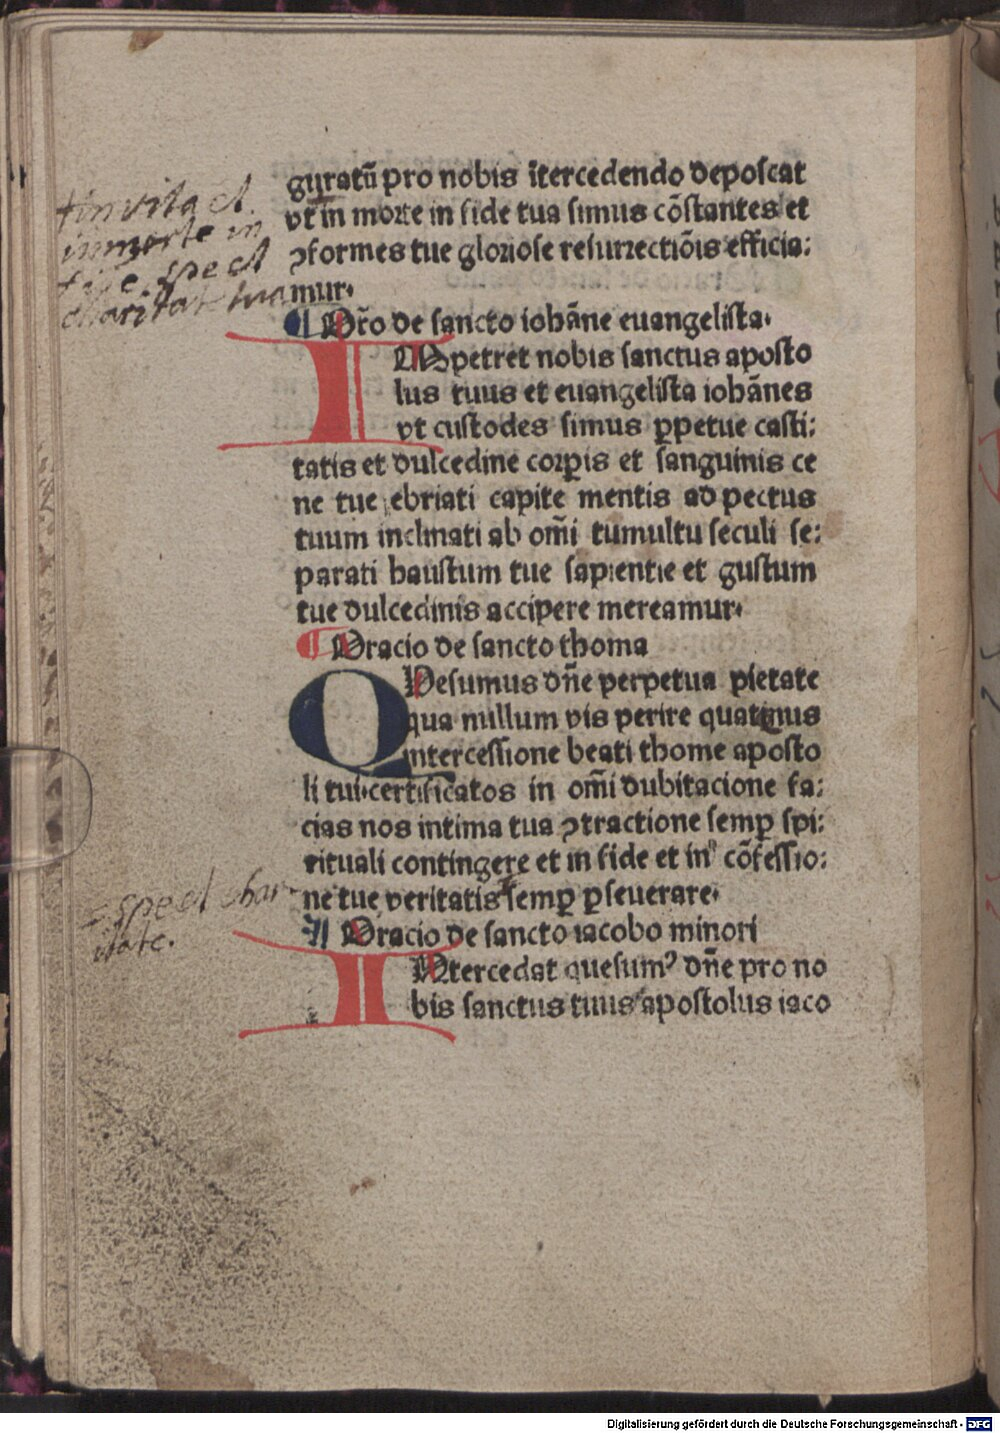 guratū pro nobis ītercedendo deposcat
vt in morte in fide tua simus cōstantes et
ꝯformes tue gloriose resurrectiōis efficia:
mur·
+ in vita et
in morte in
fide spe et
charitate tua
¶ Or̄o de sancto iohāne euangelista·
IMpetret nobis sanctus aposto
lus tuus et euangelista iohānes
vt custodes simus ꝑpetue casti:
tatis et dulcedine corꝑis et sanguinis ce
ne tue ebriati capite mentis ad pectus
tuum inclinati ab om̄i tumultu seculi se:
parati haustum tue sapientie et gustum
tue dulcedinis accipere mereamur·
¶ Oracio de sancto thoma
QUesumus dn̄e perpetua pietate
qua nullum vis perire quatinus
intercessione beati thome aposto
li tui certificatos in om̄i dubitacione fa:
cias nos intima tua ꝯtractione semꝑ spi:
rituali contingere et in fide et in cōfessio:
ne tue veritatis semꝑ ꝑseuerare·
spe et char
itate.
¶ Oracio de sancto iacobo minori
INtercedat quesumꝰ dn̄e pro no
bis sanctus tuus apostolus iaco
Digitalisierung gefördert durch die Deutsche Forschungsgemeinschaft - DFG